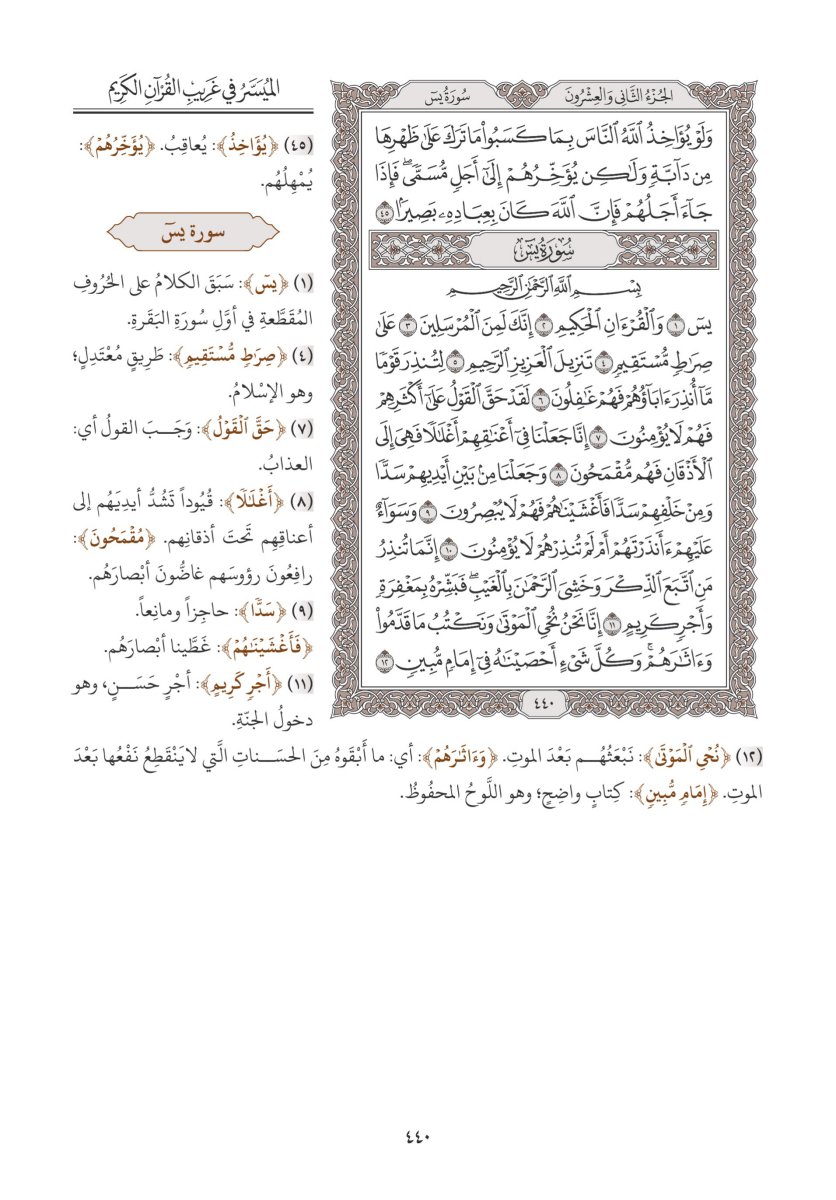 الجُزْءُ الثَّانِي وَالعِشْرُونَ
سُورَةُ يسٓ
المُيَسَّرُ في غَرِيبِ القُرْآنِ الكَرِيمِ
وَلَوْ يُؤَاخِذُ ٱللَّهُ ٱلنَّاسَ بِمَا كَسَبُوا۟ مَا تَرَكَ عَلَىٰ ظَهْرِهَا
مِن دَآبَّةٍ وَلَٰكِن يُؤَخِّرُهُمْ إِلَىٰٓ أَجَلٍ مُّسَمًّى ۖ فَإِذَا
جَآءَ أَجَلُهُمْ فَإِنَّ ٱللَّهَ كَانَ بِعِبَادِهِۦ بَصِيرًۢا ٤٥
سُورَةُ يسٓ
بِسْمِ ٱللَّهِ ٱلرَّحْمَٰنِ ٱلرَّحِيمِ
يسٓ ١ وَٱلْقُرْءَانِ ٱلْحَكِيمِ ٢ إِنَّكَ لَمِنَ ٱلْمُرْسَلِينَ ٣ عَلَىٰ
صِرَٰطٍ مُّسْتَقِيمٍ ٤ تَنزِيلَ ٱلْعَزِيزِ ٱلرَّحِيمِ ٥ لِتُنذِرَ قَوْمًا
مَّآ أُنذِرَ ءَابَآؤُهُمْ فَهُمْ غَٰفِلُونَ ٦ لَقَدْ حَقَّ ٱلْقَوْلُ عَلَىٰٓ أَكْثَرِهِمْ
فَهُمْ لَا يُؤْمِنُونَ ٧ إِنَّا جَعَلْنَا فِىٓ أَعْنَٰقِهِمْ أَغْلَٰلًا فَهِىَ إِلَى
ٱلْأَذْقَانِ فَهُم مُّقْمَحُونَ ٨ وَجَعَلْنَا مِنۢ بَيْنِ أَيْدِيهِمْ سَدًّا
وَمِنْ خَلْفِهِمْ سَدًّا فَأَغْشَيْنَٰهُمْ فَهُمْ لَا يُبْصِرُونَ ٩ وَسَوَآءٌ
عَلَيْهِمْ ءَأَنذَرْتَهُمْ أَمْ لَمْ تُنذِرْهُمْ لَا يُؤْمِنُونَ ١٠ إِنَّمَا تُنذِرُ
مَنِ ٱتَّبَعَ ٱلذِّكْرَ وَخَشِىَ ٱلرَّحْمَٰنَ بِٱلْغَيْبِ ۖ فَبَشِّرْهُ بِمَغْفِرَةٍ
وَأَجْرٍ كَرِيمٍ ١١ إِنَّا نَحْنُ نُحْىِ ٱلْمَوْتَىٰ وَنَكْتُبُ مَا قَدَّمُوا۟
وَءَاثَٰرَهُمْ ۚ وَكُلَّ شَىْءٍ أَحْصَيْنَٰهُ فِىٓ إِمَامٍ مُّبِينٍ ١٢
٤٤٠
(٤٥) ﴿يُؤَاخِذُ﴾: يُعاقِبُ. ﴿يُؤَخِّرُهُمْ﴾:
يُمْهِلُهُم.
سورة يسٓ
(١) ﴿يسٓ﴾: سَبَقَ الكلامُ على الحُرُوفِ
المُقَطَّعةِ في أوَّلِ سُورَةِ البَقَرةِ.
(٤) ﴿صِرَٰطٍ مُّسْتَقِيمٍ﴾: طَرِيقٍ مُعْتَدِلٍ؛
وهو الإسْلامُ.
(٧) ﴿حَقَّ ٱلْقَوْلُ﴾: وَجَبَ القولُ أي:
العذابُ.
(٨) ﴿أَغْلَٰلًا﴾: قُيُوداً تَشُدُّ أيديَهُم إلى
أعناقِهِم تَحتَ أذقانِهم. ﴿مُّقْمَحُونَ﴾:
رافِعُونَ رؤوسَهم غاضُّونَ أبْصارَهُم.
(٩) ﴿سَدًّا﴾: حاجِزاً ومانِعاً.
﴿فَأَغْشَيْنَٰهُمْ﴾: غَطَّينا أبْصارَهُم.
(١١) ﴿أَجْرٍ كَرِيمٍ﴾: أجْرٍ حَسَنٍ، وهو
دخولُ الجنّةِ.
(١٢) ﴿نُحْىِ ٱلْمَوْتَىٰ﴾: نَبْعَثُهُم بَعْدَ الموتِ. ﴿وَءَاثَٰرَهُمْ﴾: أي: ما أَبْقَوهُ مِنَ الحَسَناتِ الَّتي لا يَنْقَطِعُ نَفْعُها بَعْدَ
الموتِ. ﴿إِمَامٍ مُّبِينٍ﴾: كِتابٍ واضِحٍ؛ وهو اللَّوحُ المحفُوظُ.
٤٤٠